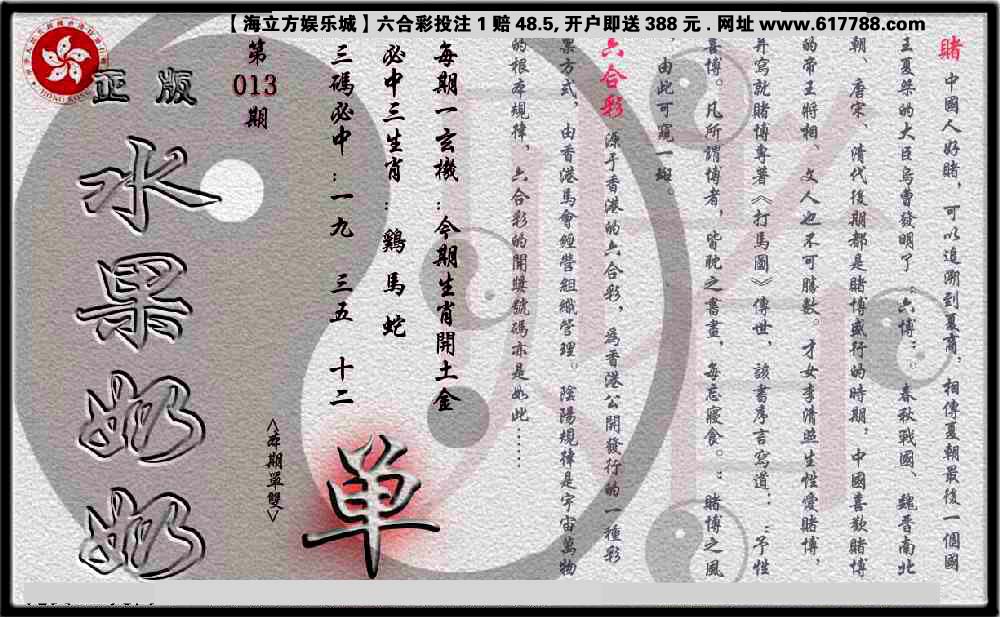 【海立方娱乐城】六合彩投注1赔48.5,开户即送388元.网址www.617788.com
賭 中國人好賭，可以追溯到夏商，相傳夏朝最後一個國
王夏桀的大臣烏曹發明了“六博”。春秋戰國、魏晋南北
朝、唐宋、清代後期都是賭博盛行的時期，中國喜歡賭博
的帝王將相、文人也不可勝數。才女李清照生性愛賭博，
并寫就賭博專著《打馬圖》傳世，該書序言寫道：“予性
喜博。凡所謂博者，皆耽之晝，每忘寢食。”賭博之風
，由此可窺一斑。
六合彩 源于香港的六合彩，爲香港公開發行的一種彩
票方式，由香港馬會經營組織管理。陰陽規律是宇宙萬物
的根本規律，六合彩的開獎號碼亦是如此……
每期一玄機：今期生肖開土金
必中三生肖：鷄 馬 蛇
三碼必中：一九 三五 十二
第
013
期
<本期單雙>
单
正版
水果奶奶
HONG KONG